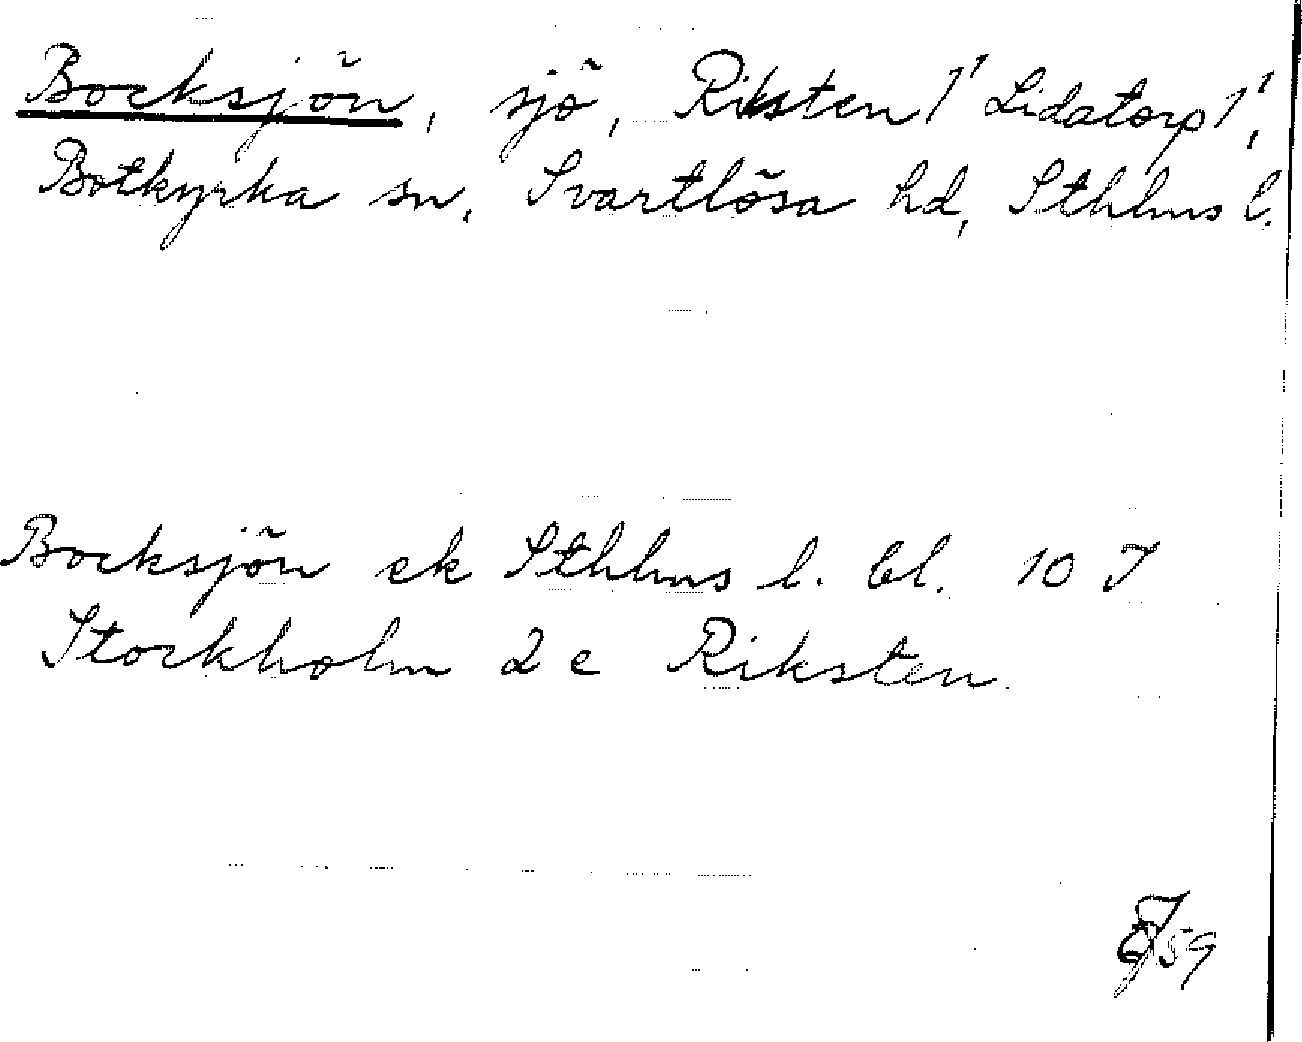 Bocksjön, sjö, Riksten 1' Lidatorp 1',
Botkyrka sn, Svartlösa hd, Sthlms l.
Bocksjön ek Sthlms l. bl. 10 J
Stockholm 2 c Riksten.
59